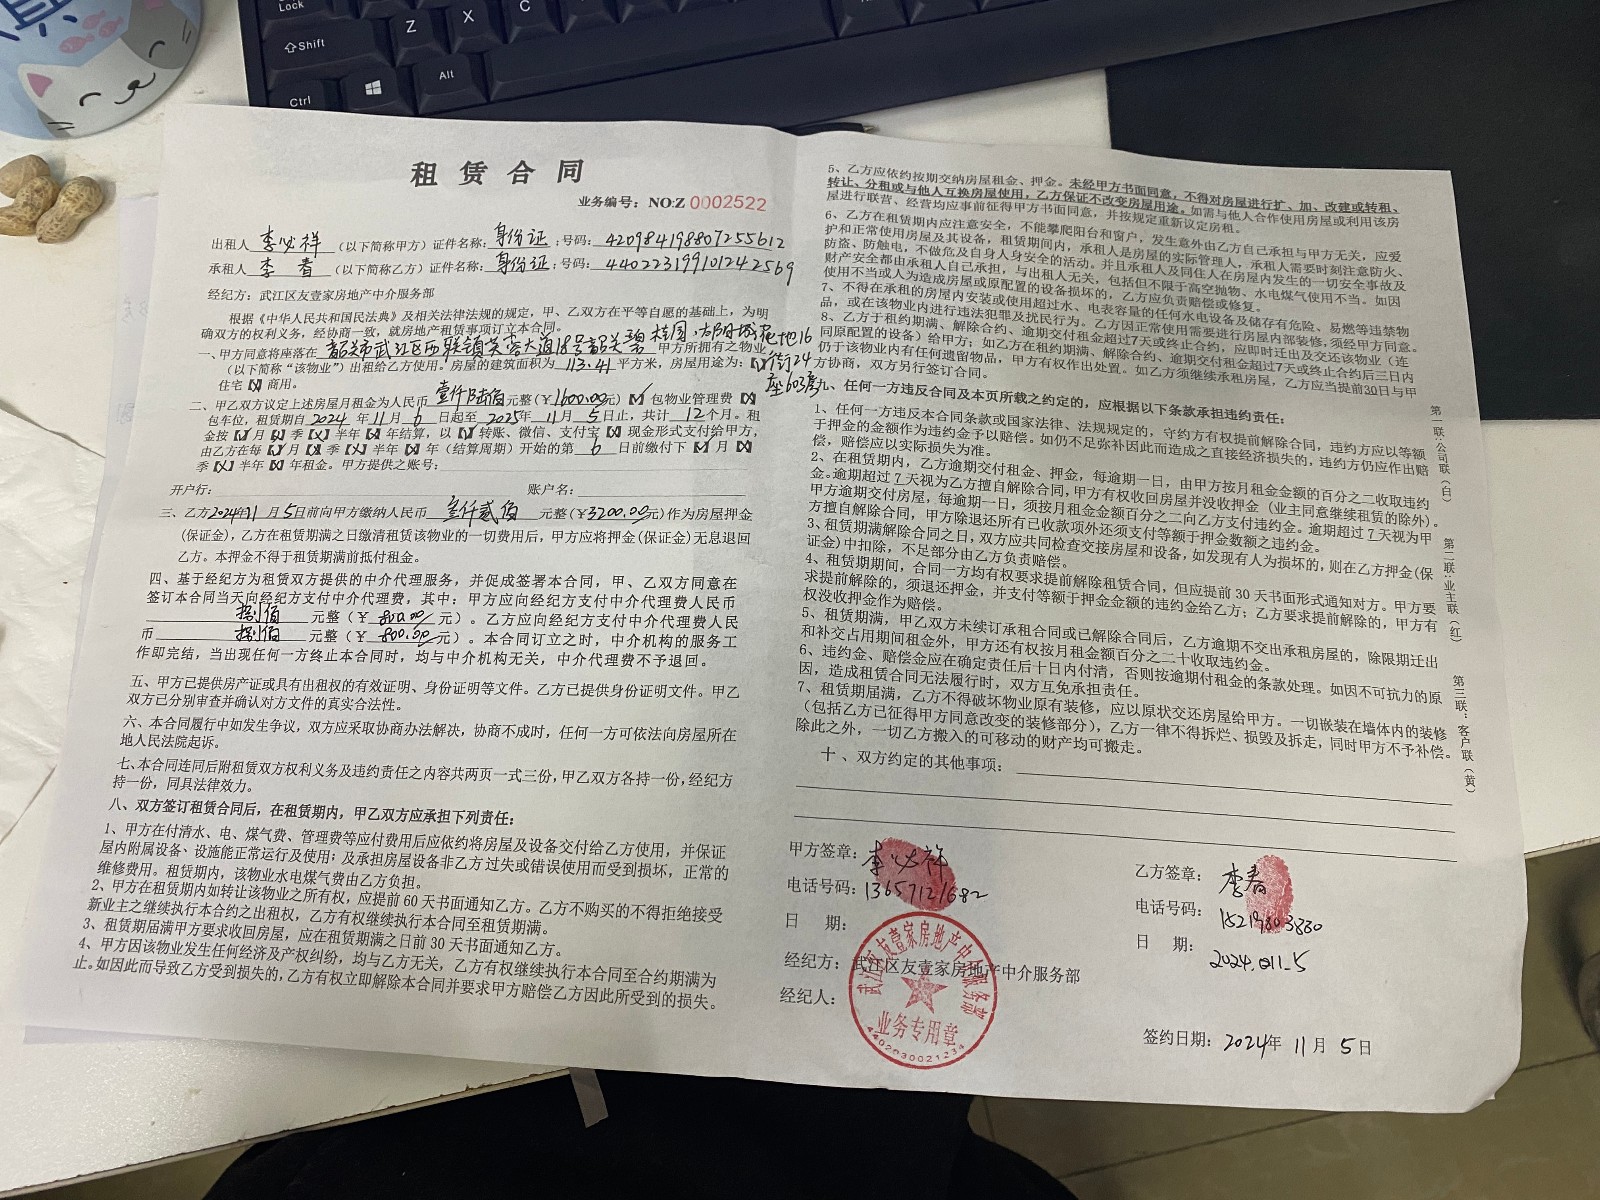 Lock
Shift
Z
X
C
Ctrl
Alt
租赁合同
业务编号：NO:Z 0002522
出租人 李必祥 （以下简称甲方）证件名称：身份证；号码：420984198807255612
承租人 李春 （以下简称乙方）证件名称：身份证；号码：440223199101242569
经纪方：武江区友壹家房地产中介服务部
根据《中华人民共和国民法典》及相关法律法规的规定，甲、乙双方在平等自愿的基础上，为明
确双方的权利义务，经协商一致，就房地产租赁事项订立本合同。
一、甲方同意将座落在 韶关市武江区西联镇芙蓉大道18号韶关碧桂园·太阳城花地16街24座603房 甲方所拥有之物业
（以下简称“该物业”）出租给乙方使用。房屋的建筑面积为 113.41 平方米，房屋用途为：【√】
住宅【X】商用。
二、甲乙双方议定上述房屋月租金为人民币 壹仟陆佰 元整（￥1600.00元）【√】包物业管理费【X】
包车位，租赁期自 2024 年 11 月 6 日起至 2025 年 11 月 5 日止，共计 12 个月。租
金按【√】月【X】季【X】半年【X】年结算，以【√】转账、微信、支付宝【X】现金形式支付给甲方，
由乙方在每【√】月【X】季【X】半年【X】年（结算周期）开始的第 6 日前缴付下【√】月【X】
季【X】半年【X】年租金。甲方提供之账号：
开户行： 账户名：
三、乙方2024年11月5日前向甲方缴纳人民币 叁仟贰佰 元整（￥3200.00元）作为房屋押金
(保证金)，乙方在租赁期满之日缴清租赁该物业的一切费用后，甲方应将押金(保证金)无息退回
乙方。本押金不得于租赁期满前抵付租金。
四、基于经纪方为租赁双方提供的中介代理服务，并促成签署本合同，甲、乙双方同意在
签订本合同当天向经纪方支付中介代理费，其中：甲方应向经纪方支付中介代理费人民币
捌佰 元整（￥ 800.00 元）。乙方应向经纪方支付中介代理费人民
币 捌佰 元整（￥ 800.00 元）。本合同订立之时，中介机构的服务工
作即完结，当出现任何一方终止本合同时，均与中介机构无关，中介代理费不予退回。
五、甲方已提供房产证或具有出租权的有效证明、身份证明等文件。乙方已提供身份证明文件。甲乙
双方已分别审查并确认对方文件的真实合法性。
六、本合同履行中如发生争议，双方应采取协商办法解决，协商不成时，任何一方可依法向房屋所在
地人民法院起诉。
七、本合同连同后附租赁双方权利义务及违约责任之内容共两页一式三份，甲乙双方各持一份，经纪方
持一份，同具法律效力。
八、双方签订租赁合同后，在租赁期内，甲乙双方应承担下列责任：
1、甲方在付清水、电、煤气费、管理费等应付费用后应依约将房屋及设备交付给乙方使用，并保证
屋内附属设备、设施能正常运行及使用；及承担房屋设备非乙方过失或错误使用而受到损坏，正常的
维修费用。租赁期内，该物业水电煤气费由乙方负担。
2、甲方在租赁期内如转让该物业之所有权，应提前 60 天书面通知乙方。乙方不购买的不得拒绝接受
新业主之继续执行本合约之出租权，乙方有权继续执行本合同至租赁期满。
3、租赁期届满甲方要求收回房屋，应在租赁期满之日前 30 天书面通知乙方。
4、甲方因该物业发生任何经济及产权纠纷，均与乙方无关，乙方有权继续执行本合同至合约期满为
止。如因此而导致乙方受到损失的，乙方有权立即解除本合同并要求甲方赔偿乙方因此所受到的损失。
5、乙方应依约按期交纳房屋租金、押金。未经甲方书面同意，不得对房屋进行扩、加、改建或转租、
转让、分租或与他人互换房屋使用，乙方保证不改变房屋用途。如需与他人合作使用房屋或利用该房
屋进行联营、经营均应事前征得甲方书面同意，并按规定重新议定房租。
6、乙方在租赁期内应注意安全，不能攀爬阳台和窗户，发生意外由乙方自己承担与甲方无关，应爱
护和正常使用房屋及其设备，租赁期间内，承租人是房屋的实际管理人，承租人需要时刻注意防火、
防盗、防触电，不做危及自身人身安全的活动。并且承租人及同住人在房屋内发生的一切安全事故及
财产安全都由承租人自己承担，与出租人无关，包括但不限于高空抛物、水电煤气使用不当。如因
使用不当或人为造成房屋或原配置的设备损坏的，乙方应负责赔偿或修复。
7、不得在承租的房屋内安装或使用超过水、电表容量的任何水电设备及储存有危险、易燃等违禁物
品，或在该物业内进行违法犯罪及扰民行为。乙方因正常使用需要进行房屋内部装修，须经甲方同意。
8、乙方于租约期满、解除合约、逾期交付租金超过7天或终止合约，应即时迁出及交还该物业（连
同原配置的设备）给甲方；如乙方在租约期满、解除合约、逾期交付租金超过7天或终止合约后三日内
仍于该物业内有任何遗留物品，甲方有权作出处置。如乙方须继续承租房屋，乙方应当提前30日与甲
方协商，双方另行签订合同。
九、任何一方违反合同及本页所载之约定的，应根据以下条款承担违约责任：
1、任何一方违反本合同条款或国家法律、法规规定的，守约方有权提前解除合同，违约方应以等额
于押金的金额作为违约金予以赔偿。如仍不足弥补因此而造成之直接经济损失的，违约方仍应作出赔
偿，赔偿应以实际损失为准。
2、在租赁期内，乙方逾期交付租金、押金，每逾期一日，由甲方按月租金金额的百分之二收取违约
金。逾期超过 7 天视为乙方擅自解除合同，甲方有权收回房屋并没收押金（业主同意继续租赁的除外）。
甲方逾期交付房屋，每逾期一日，须按月租金金额百分之二向乙方支付违约金。逾期超过 7 天视为甲
方擅自解除合同，甲方除退还所有已收款项外还须支付等额于押金数额之违约金。
3、租赁期满解除合同之日，双方应共同检查交接房屋和设备，如发现有人为损坏的，则在乙方押金(保
证金)中扣除，不足部分由乙方负责赔偿。
4、租赁期期间，合同一方均有权要求提前解除租赁合同，但应提前 30 天书面形式通知对方。甲方要
求提前解除的，须退还押金，并支付等额于押金金额的违约金给乙方；乙方要求提前解除的，甲方有
权没收押金作为赔偿。
5、租赁期满，甲乙双方未续订承租合同或已解除合同后，乙方逾期不交出承租房屋的，除限期迁出
和补交占用期间租金外，甲方还有权按月租金额百分之二十收取违约金。
6、违约金、赔偿金应在确定责任后十日内付清，否则按逾期付租金的条款处理。如因不可抗力的原
因，造成租赁合同无法履行时，双方互免承担责任。
7、租赁期届满，乙方不得破坏物业原有装修，应以原状交还房屋给甲方。一切嵌装在墙体内的装修
（包括乙方已征得甲方同意改变的装修部分），乙方一律不得拆烂、损毁及拆走，同时甲方不予补偿。
除此之外，一切乙方搬入的可移动的财产均可搬走。
十、双方约定的其他事项：
第一联：公司联（白）
第二联：业主联（红）
第三联：客户联（黄）
甲方签章：李必祥
电话号码：13657121682
日 期：
经纪方：武江区友壹家房地产中介服务部
经纪人：
乙方签章：李春
电话号码：15219803880
日 期：
2024.011.5
签约日期：2024年 11月 5日
武江区友壹家房地产中介服务部
业务专用章
4402030021234